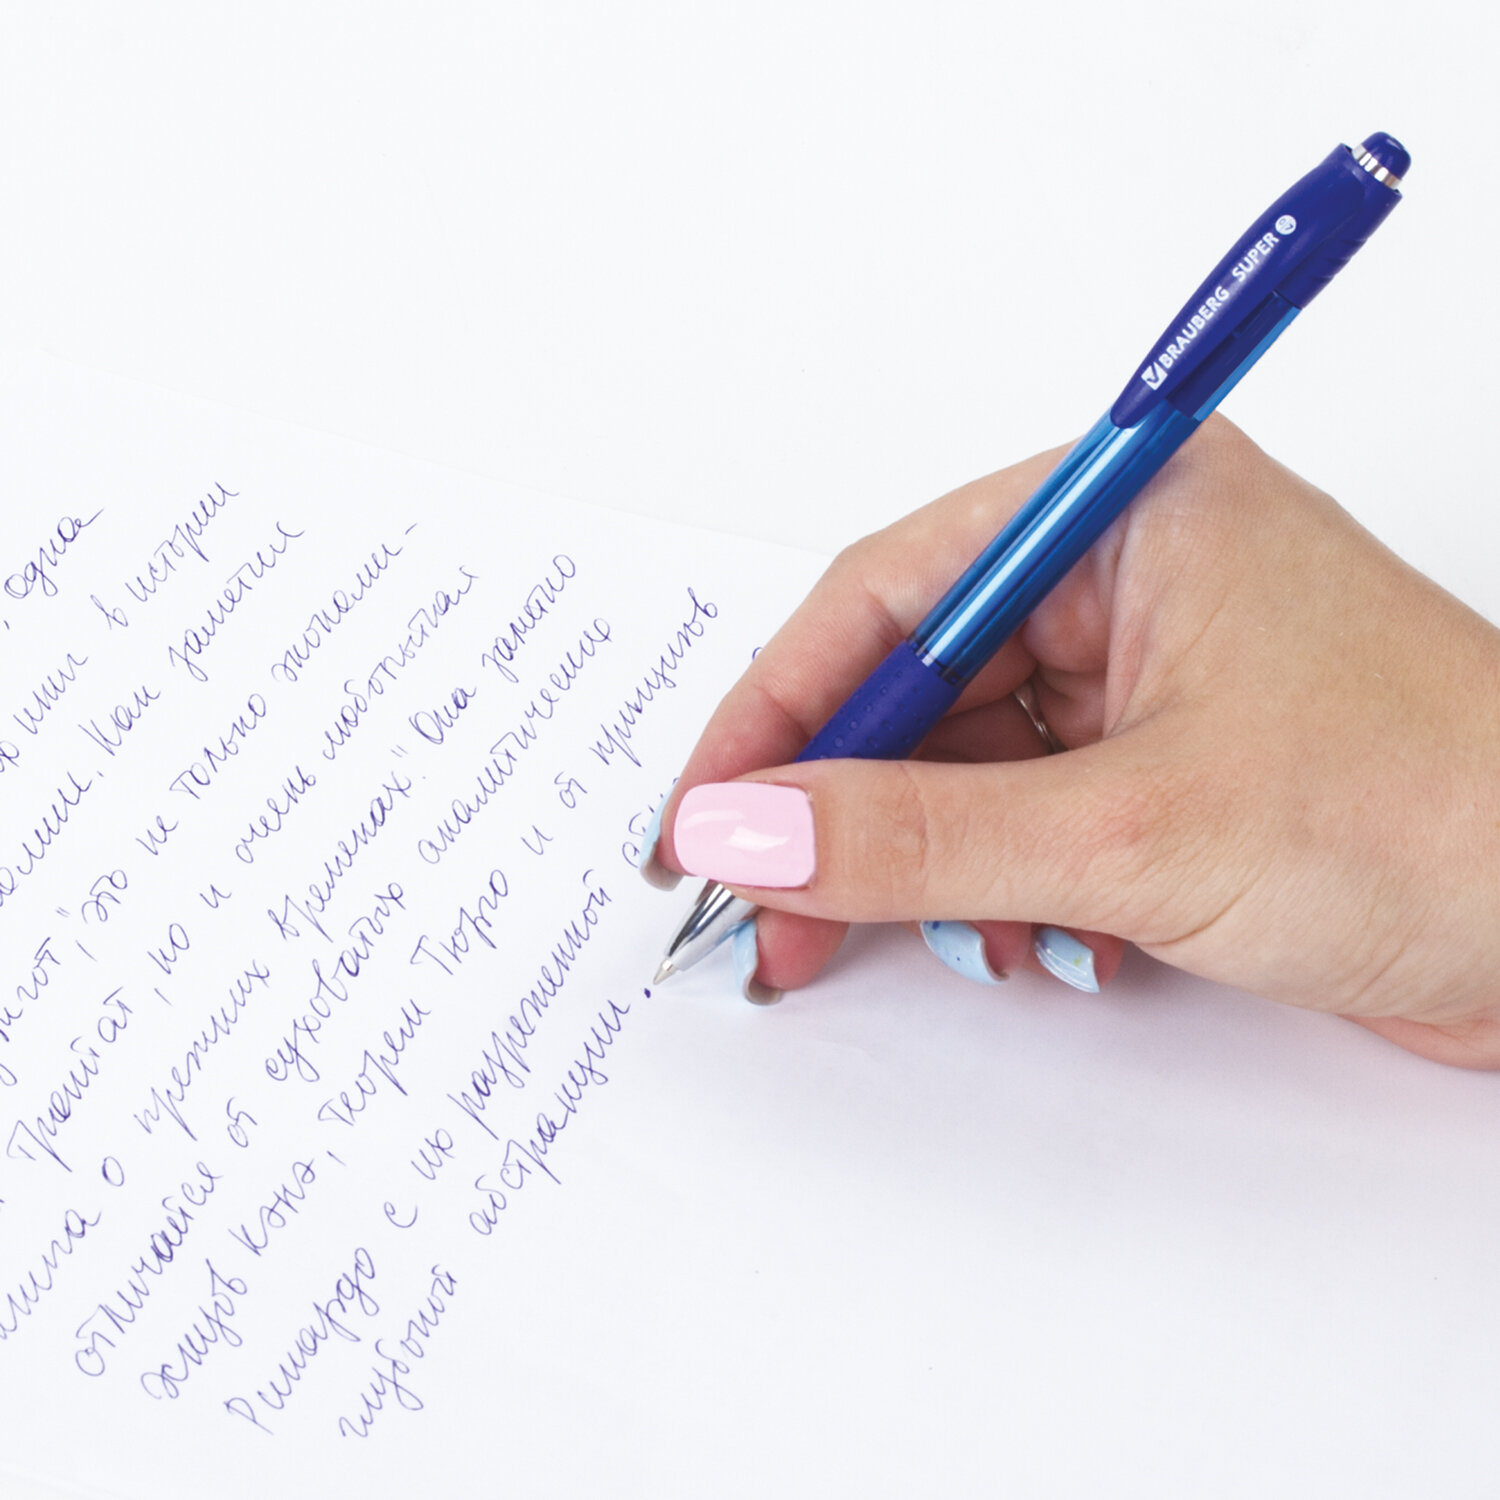 , одна
книг в истории
. Как заметил
", это не только экономи-
Трактат, но и очень любопытная
о прежних временах". Она заметно
отличается от суховатых аналитических
эскизов Кэнэ, теорем Тюрго и от принципов
Рикардо с их разреженной
глубокой абстракции.
BRAUBERG SUPER 0.7